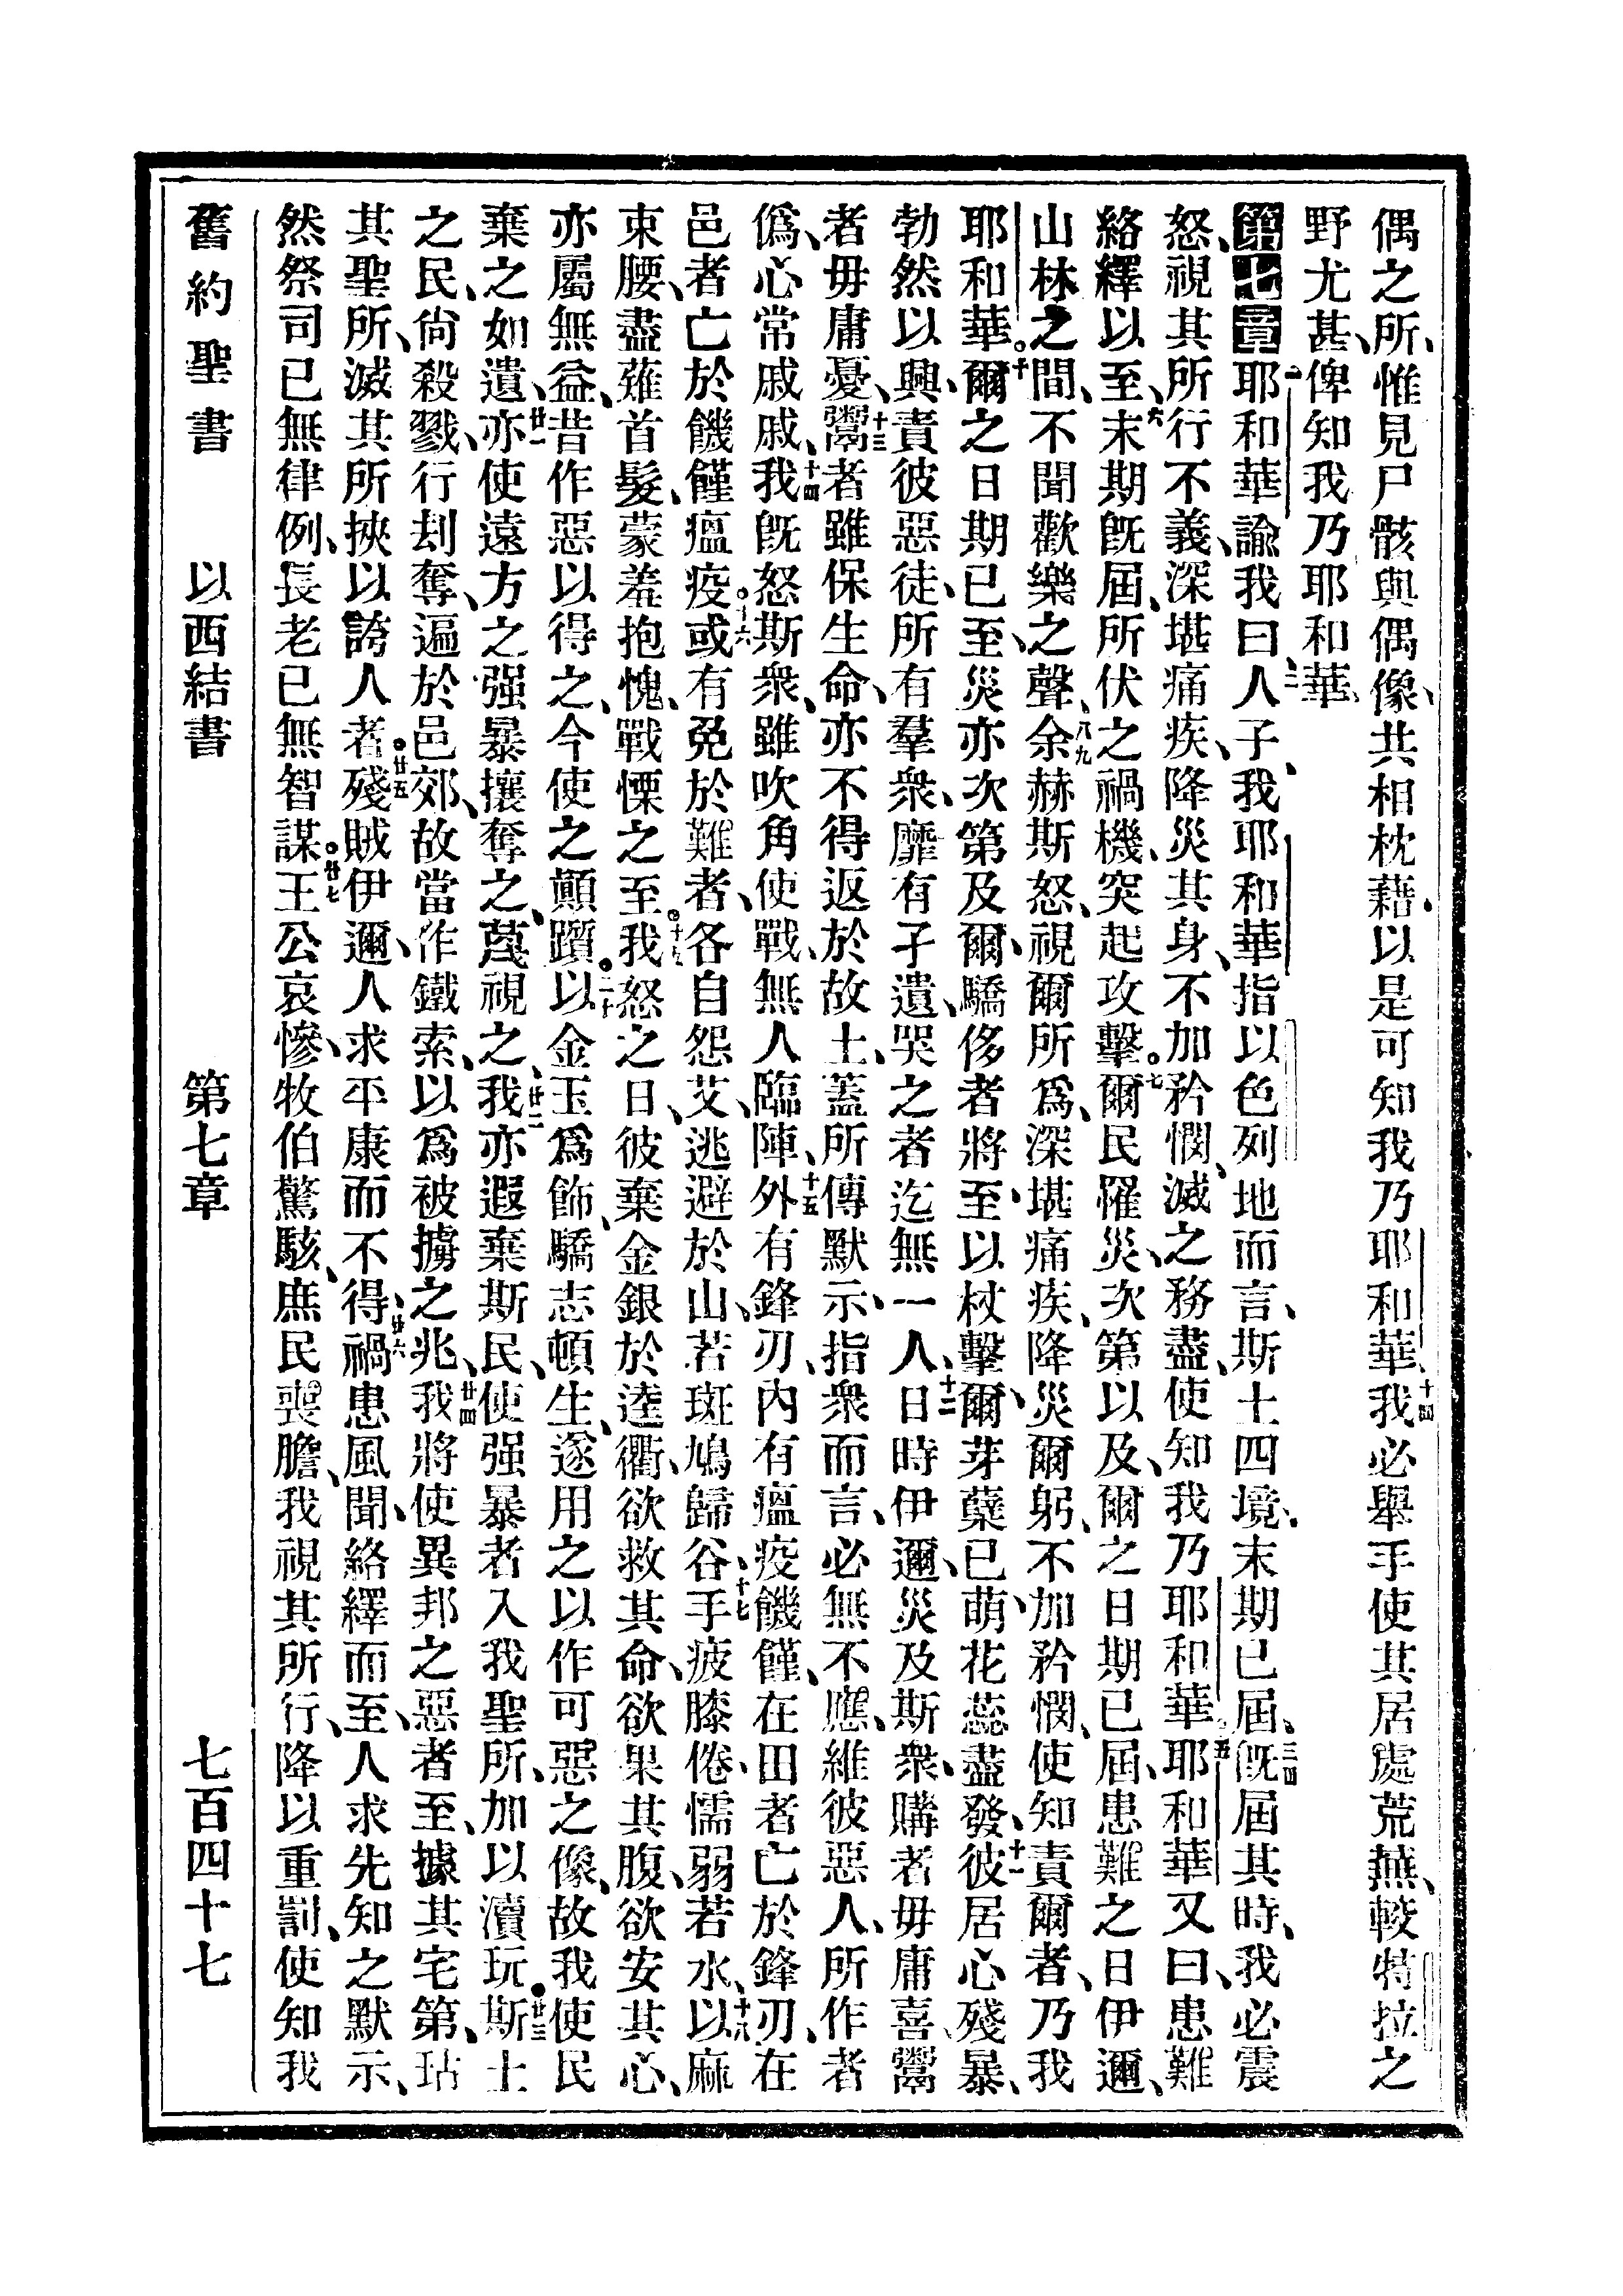 偶之所、惟見尸骸與偶像、共相枕藉、以是可知我乃耶和華、十四我必舉手使其居處荒蕪、較特拉之
野尤甚、俾知我乃耶和華、
第七章一耶和華諭我曰、二人子、我耶和華、指以色列地而言、斯土四境、末期已屆、三四旣屆其時、我必震
怒、視其所行不義、深堪痛疾、降災其身、不加矜憫、滅之務盡、使知我乃耶和華、五耶和華又曰、患難
絡繹以至、六末期旣屆、所伏之禍機、突起攻擊。七爾民罹災、次第以及、爾之日期已屆、患難之日伊邇、
山林之間、不聞歡樂之聲、八九余赫斯怒、視爾所爲、深堪痛疾、降災爾躬、不加矜憫、使知責爾者、乃我
耶和華。十爾之日期已至、災亦次第及爾、驕侈者將至、以杖擊爾、爾芽蘖已萌、花蕊盡發、十一彼居心殘暴、
勃然以興、責彼惡徒、所有羣衆、靡有孑遺、哭之者迄無一人、十二日時伊邇、災及斯衆、購者毋庸喜、鬻
者毋庸憂、十三鬻者雖保生命、亦不得返於故土、蓋所傳默示、指衆而言、必無不應、維彼惡人、所作者
僞、心常戚戚、十四我旣怒斯衆、雖吹角使戰、無人臨陣、十五外有鋒刃、內有瘟疫饑饉、在田者亡於鋒刃、在
邑者亡於饑饉瘟疫。十六或有免於難者、各自怨艾、逃避於山、若斑鳩歸谷、十七手疲膝倦、懦弱若水、十八以麻
束腰、盡薙首髮、蒙羞抱愧、戰慄之至。十九我怒之日、彼棄金銀於逵衢、欲救其命、欲果其腹、欲安其心、
亦屬無益、昔作惡以得之、今使之顚躓。二十以金玉爲飾、驕志頓生、遂用之以作可惡之像、故我使民
棄之如遺、廿一亦使遠方之强暴攘奪之、蔑視之、廿二我亦遐棄斯民、使强暴者入我聖所、加以瀆玩。廿三斯土
之民、尙殺戮、行刦奪、遍於邑郊、故當作鐵索、以爲被擄之兆、廿四我將使異邦之惡者至、據其宅第、玷
其聖所、滅其所挾以誇人者。廿五殘賊伊邇、人求平康而不得、廿六禍患風聞、絡繹而至、人求先知之默示、
然祭司已無律例、長老已無智謀。廿七王公哀慘、牧伯驚駭、庶民喪膽、我視其所行、降以重罰、使知我
舊約聖書 以西結書 第七章 七百四十七